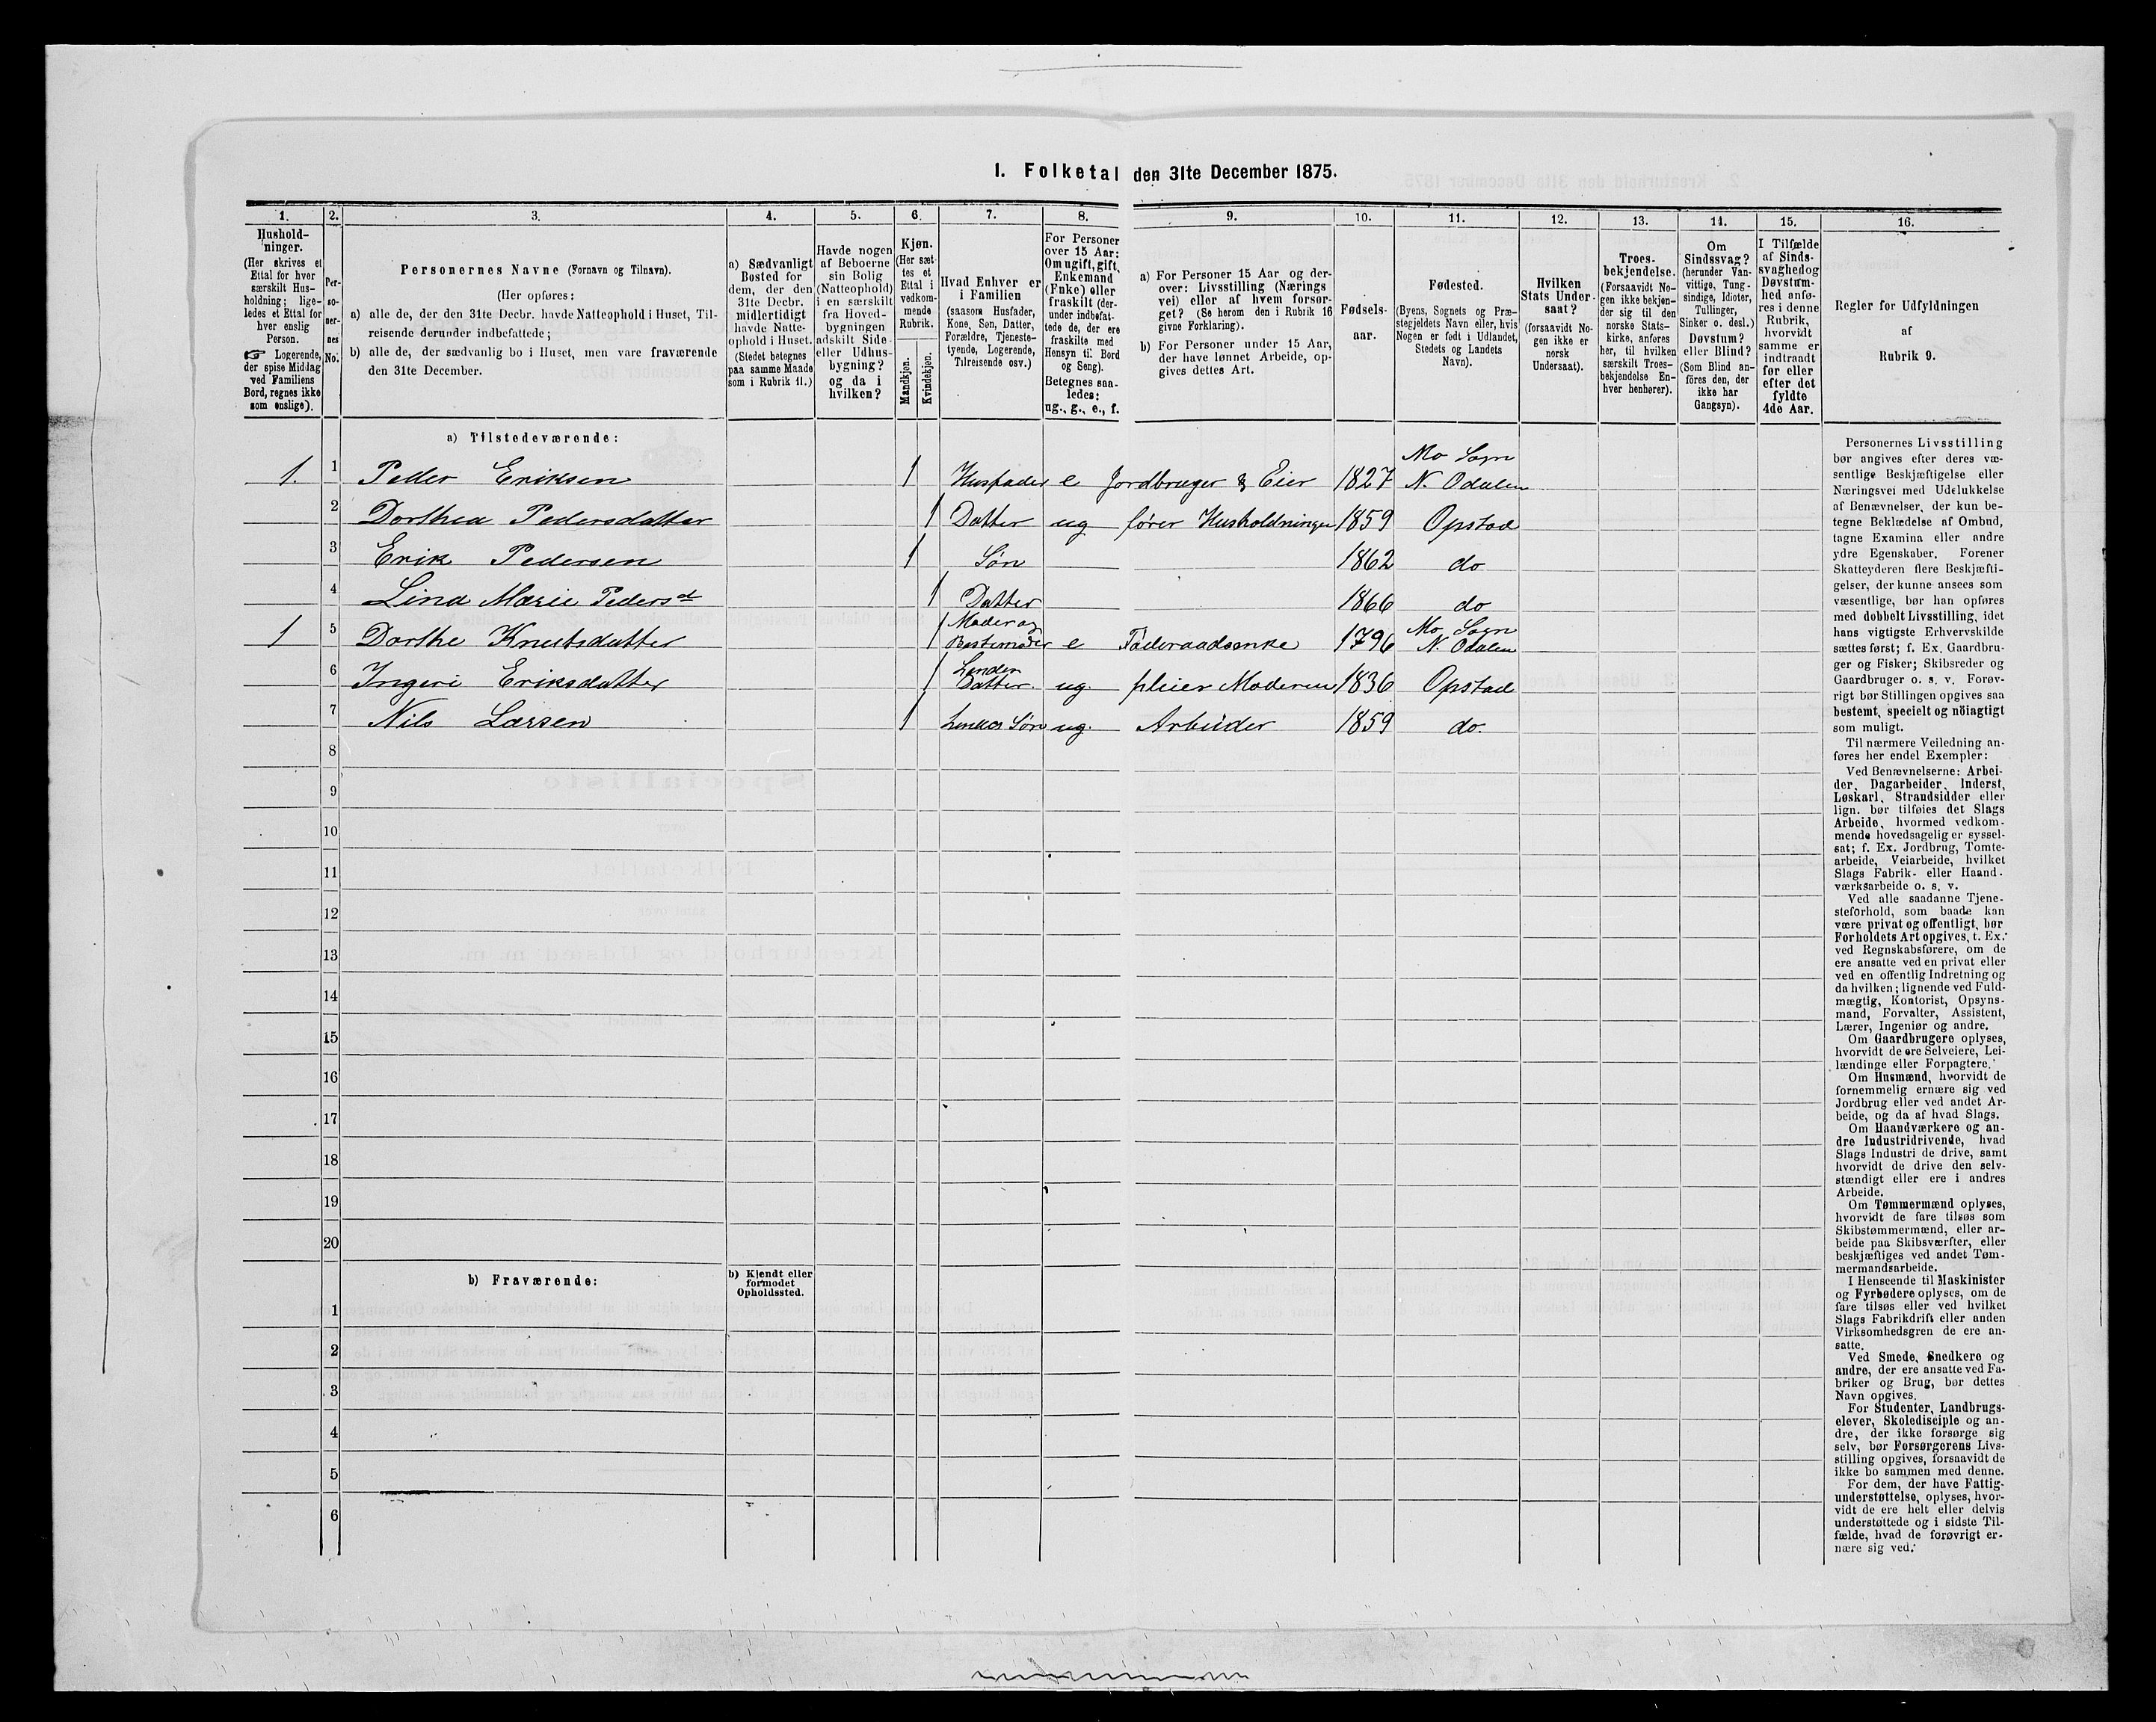 I. Folketal den 31te December 1875.
1.
2.
3.
4.
5.
6.
7.
8.
9.
10.
11.
12.
13.
14.
15.
16.
Hushold-
ninger.
(Her skrives et
Ettal for hver
særskilt Hus-
holdning; lige-
ledes et Ettal for
hver enslig
Person.
☞ Logerende,
der spise Middag
ved Familiens
Bord, regnes ikke
som enslige).
Per-
so-
ner-
nes
No.
Personernes Navne (Fornavn og Tilnavn).
(Her opføres:
a) alle de, der den 31te Decbr. havde Natteophold i Huset, Til-
reisende derunder indbefattede;
b) alle de, der sædvanlig bo i Huset, men vare fraværende
den 31te December.
a) Sædvanligt
Bosted for
dem, der den
31te Decbr.
midlertidigt
havde Natte-
ophold i Huset.
(Stedet betegnes
paa samme Maade
som i Rubrik 11.)
Havde nogen
af Beboerne
sin Bolig
(Natteophold)
i en særskilt
fra Hoved-
bygningen
adskilt Side-
eller Udhus-
bygning?
og da i
hvilken?
Kjøn.
(Her sæt-
tes et
Ettal i
vedkom-
mende
Rubrik.
Mandkjøn.
Kvindekjøn.
Hvad Enhver er
i Familien
(saasom Husfader,
Kone, Søn, Datter,
Forældre, Tjeneste-
tyende, Logerende,
Tilreisende osv.)
For Personer
over 15 Aar:
Om ugift, gift,
Enkemand
(Enke) eller
fraskilt (der-
under indbefat-
tede de, der ere
fraskilte med
Hensyn til Bord
og Seng).
Betegnes saa-
ledes:
ug., g., e., f.
a) For Personer 15 Aar og der-
over: Livsstilling (Nærings-
vei) eller af hvem forsør-
get? (Se herom den i Rubrik 16
givne Forklaring).
b) For Personer under 15 Aar,
der have lønnet Arbeide, op-
gives dettes Art.
Fødsels-
aar.
Fødested.
(Byens, Sognets og Præ-
stegjeldets Navn eller, hvis
Nogen er født i Udlandet,
Stedets og Landets
Navn).
Hvilken
Stats Under-
saat?
(forsaavidt No-
gen ikke er
norsk
Undersaat).
Troes-
bekjendelse.
(Forsaavidt No-
gen ikke bekjen-
der sig til den
norske Stats-
kirke, anføres
her, til hvilken
særskilt Troes-
bekjendelse En-
hver henhører).
Om
Sindssvag?
(herunder Van-
vittige, Tung-
sindige, Idioter,
Tullinger,
Sinker o. desl.)
Døvstum?
eller Blind?
(Som Blind an-
føres den, der
ikke har
Gangsyn).
I Tilfælde
af Sinds-
svaghed og
Døvstum-
hed anfø-
res i denne
Rubrik,
hvorvidt
samme er
indtraadt
før eller
efter det
fyldte
4de Aar.
Regler for Udfyldningen
af
Rubrik 9.
a) Tilstedeværende:
1. 1 Peder Eriksen 1 Husfader e Jordbruger & Eier 1827 Mo Sogn N. Odalen
2 Dorthea Pedersdatter 1 Datter ug fører Husholdningen 1859 Opstad
3 Erik Pedersen 1 Søn 1862 do
4 Lina Marie Pedersd 1 Datter 1866 do
1 5 Dorthe Knutsdatter 1 Moder og Bestemoder e Føderaadsenke 1796 Mo Sogn N. Odalen
6 Ingeri Eriksdatter 1 Datter. ug. pleier Moderen 1836 Opstad
7 Nils Larsen 1 Søn ug. Arbeider 1859 do.
8
9
10
11
12
13
14
15
16
17
18
19
20
b) Fraværende:
b) Kjendt eller
formodet
Opholdssted.
1
2
3
4
5
6
Personernes Livsstilling
bør angives efter deres væ-
sentlige Beskjæftigelse eller
Næringsvei med Udelukkelse
af Benævnelser, der kun be-
tegne Beklædelse af Ombud,
tagne Examina eller andre
ydre Egenskaber. Forener
Skatteyderen flere Beskjæfti-
gelser, der kunne ansees som
væsentlige, bør han opføres
med dobbelt Livsstilling, idet
hans vigtigste Erhvervskilde
sættes først; f. Ex. Gaardbru-
ger og Fisker; Skibsreder og
Gaardbruger o. s. v. Forøv-
rigt bør Stillingen opgives saa
bestemt, specielt og nöiagtigt
som muligt.
Til nærmere Veiledning an-
føres her endel Exempler:
Ved Benævnelserne: Arbei-
der, Dagarbeider, Inderst,
Løskarl, Strandsidder eller
lign. bør tilføies det Slags
Arbeide, hvormed vedkom-
mende hovedsagelig er syssel-
sat; f. Ex. Jordbrug, Tomte-
arbeide, Veiarbeide, hvilket
Slags Fabrik- eller Haand-
værksarbeide o. s. v.
Ved alle saadanne Tjene-
steforhold, som baade kan
være privat og offentligt, bør
Forholdets Art opgives, t. Ex.
ved Regnskabsførere, om de
ere ansatte ved en privat eller
ved en offentlig Indretning og
da hvilken; lignende ved Fuld-
mægtig, Kontorist, Opsyns-
mand, Forvalter, Assistent,
Lærer, Ingeniør og andre.
Om Gaardbrugere oplyses,
hvorvidt de ere Selveiere, Lei-
lændinge eller Forpagtere.
Om Husmænd, hvorvidt de
fornemmelig ernære sig ved
Jordbrug eller ved andet Ar-
beide, og da af hvad Slags.
Om Haandværkere og an-
dre Industridrivende, hvad
Slags Industri de drive, samt
hvorvidt de drive den selv-
stændigt eller ere i andres
Arbeide.
Om Tømmermænd oplyses,
hvorvidt de fare tilsøs som
Skibstømmermænd, eller ar-
beide paa Skibsværfter, eller
beskjæftiges ved andet Tøm-
mermandsarbeide.
I Henseende til Maskinister
og Fyrbødere oplyses, om de
fare tilsøs eller ved hvilket
Slags Fabrikdrift eller anden
Virksomhedsgren de ere an-
satte.
Ved Smede, Snedkere og
andre, der ere ansatte ved Fa-
briker og Brug, bør dettes
Navn opgives.
For Studenter, Landbrugs-
elever, Skoledisciple og an-
dre, der ikke forsørge sig
selv, bør Forsørgerens Livs-
stilling opgives, forsaavidt de
ikke bo sammen med denne.
For dem, der have Fattig-
understøttelse, oplyses, hvor-
vidt de ere helt eller delvis
understøttede og i sidste Til-
fælde, hvad de forøvrigt er-
nære sig ved.